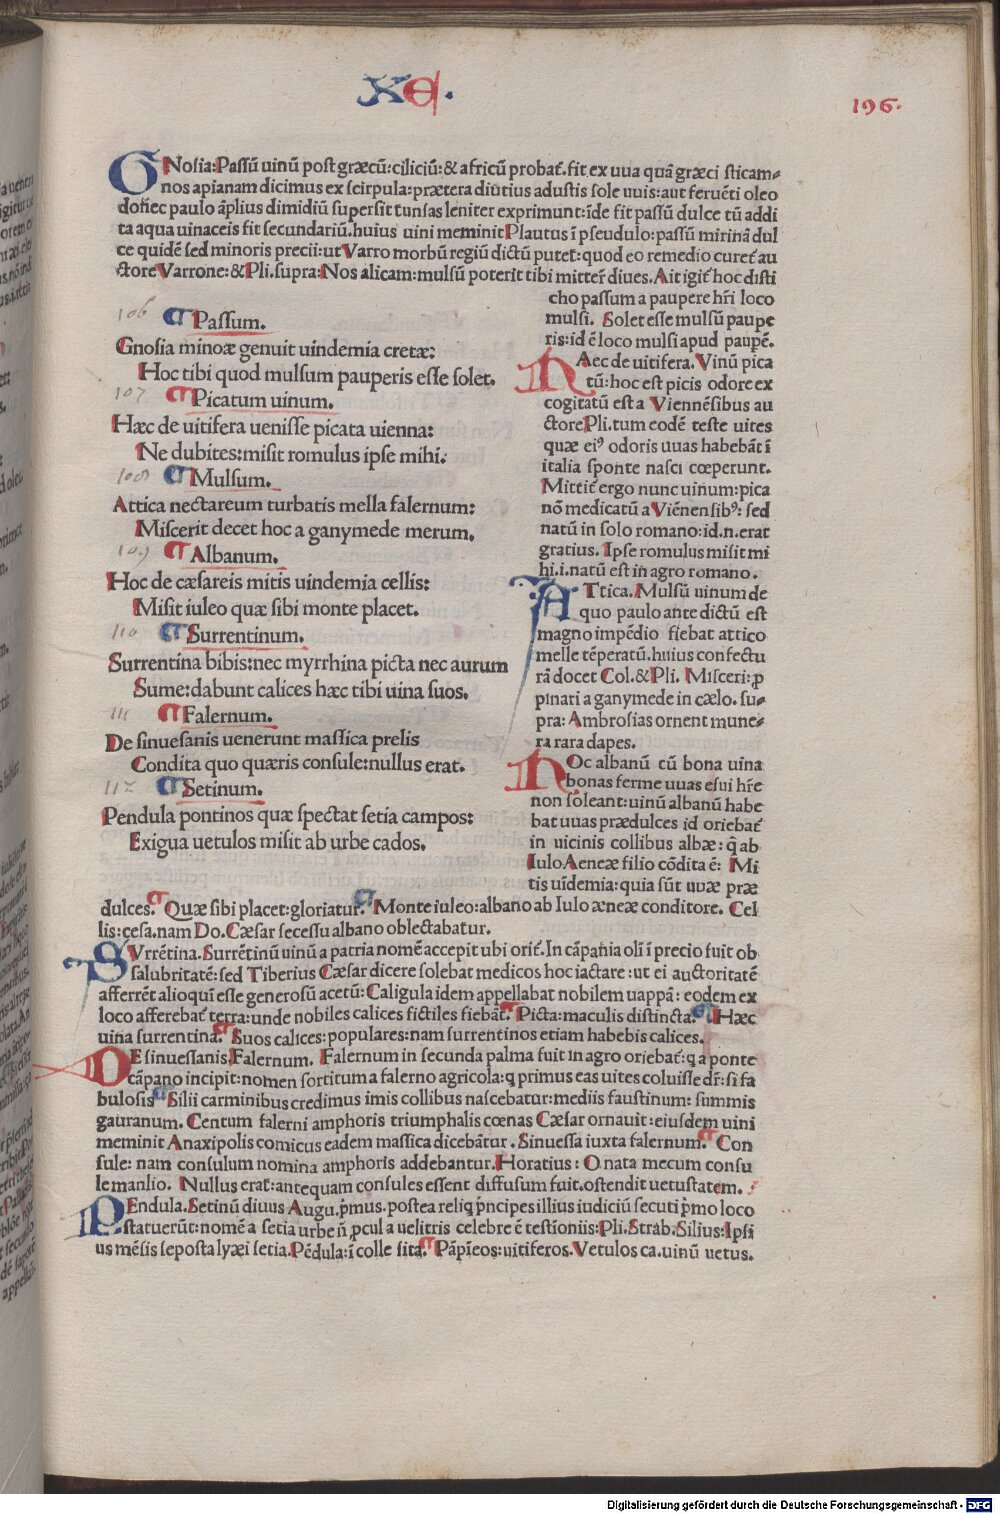 XE.
196.
GNosia:Passū uinū post græcū:ciliciū:& africū probat̄. fit ex uua quā græci sticam⸗
nos apianam dicimus ex scirpula:prætera diutius adustis sole uuis:aut feruēti oleo
donec paulo āplius dimidiū supersit tunsas leniter exprimunt:īde fit passū dulce tū addi
ta aqua uinaceis fit secundariū.huius uini meminit Plautus ī pseudulo:passū mirinā dul
ce quidē sed minoris precii:ut Varro morbū regiū dictū putet:quod eo remedio curet̄ au
ctore Varrone:& Pli.supra:Nos alicam:mulsū poterit tibi mitter̄ diues.Ait igit̄ hoc disti
cho passum a paupere hr̄i loco
mulsi. Solet esse mulsū paupe
ris:id ē loco mulsi apud paupē.
106
Passum.
Gnosia minoæ genuit uindemia cretæ:
Hoc tibi quod mulsum pauperis esse solet.
107
Picatum uinum.
Hæc de uitifera uenisse picata uienna:
Ne dubites:misit romulus ipse mihi.
108
Mulsum.
Attica nectareum turbatis mella falernum:
Miscerit decet hoc a ganymede merum.
109
Albanum.
Hoc de cæsareis mitis uindemia cellis:
Misit iuleo quæ sibi monte placet.
110
Surrentinum.
Surrentina bibis:nec myrrhina picta nec aurum
Sume:dabunt calices hæc tibi uina suos.
111
Falernum.
De sinuesanis uenerunt massica prelis
Condita quo quæris consule:nullus erat.
112
Setinum.
Pendula pontinos quæ spectat setia campos:
Exigua uetulos misit ab urbe cados.
HAec de uitifera.Vinū pica
tū:hoc est picis odore ex
cogitatū est a Viennēsibus au
ctore Pli.tum eodē teste uites
quæ eiꝰ odoris uuas habebāt ī
italia sponte nasci cœperunt.
Mittit̄ ergo nunc uinum:pica
nō medicatū a Viēnensibꝰ: sed
natū in solo romano:id.n.erat
gratius. Ipse romulus misit mi
hi.i.natū est in agro romano.
ATtica.Mulsū uinum de
quo paulo ante dictū est
magno impēdio fiebat attico
melle tēperatū.huius confectu
rā docet Col.& Pli. Misceri:ꝓ
pinari a ganymede in cælo. su⸗
pra: Ambrosias ornent mune⸗
ra rara dapes.
HOc albanū cū bona uina
bonas ferme uuas esui hr̄e
non soleant:uinū albanū habe
bat uuas prædulces id oriebat̄
in uicinis collibus albæ: q̄ ab
Iulo Aeneæ filio cōdita ē: Mi
tis uīdemia:quia sūt uuæ præ
dulces. Quæ sibi placet:gloriatur. Monte iuleo:albano ab Iulo æneæ conditore. Cel
lis:cesa.nam Do.Cæsar secessu albano oblectabatur.
SVrrētina.Surrētinū uinū a patria nomē accepit ubi orit̄. In cāpania oli ī precio fuit ob
salubritatē:sed Tiberius Cæsar dicere solebat medicos hoc iactare:ut ei auctoritatē
afferrēt alioqui esse generosū acetū:Caligula idem appellabat nobilem uappā: eodem ex
loco afferebat̄ terra:unde nobiles calices fictiles fiebāt. Picta:maculis distincta. Hæc
uina surrentina. Suos calices:populares:nam surrentinos etiam habebis calices.
DE sinuessanis.Falernum. Falernum in secunda palma fuit in agro oriebat̄:q a ponte
cāpano incipit:nomen sortitum a falerno agricola:q primus eas uites coluisse dr̄:si fa
bulosis Silii carminibus credimus imis collibus nascebatur:mediis faustinum: summis
gauranum. Centum falerni amphoris triumphalis cœnas Cæsar ornauit:eiusdem uini
meminit Anaxipolis comicus eadem massica dicebātur. Sinuessa iuxta falernum. Con
sule: nam consulum nomina amphoris addebantur.Horatius: O nata mecum consu
le manlio. Nullus erat:antequam consules essent diffusum fuit.ostendit uetustatem.
PEndula.Setinū diuus Augu.p̄mus.postea reliq p̄ncipes illius iudiciū secuti p̄mo loco
statuerūt:nomē a setia urbe n̄ ꝓcul a uelitris celebre ē testioniis:Pli.Strab.Silius:Ipsi
us mēsis seposta lyæi setia.Pēdula:ī colle sita. Pāpīeos:uitiferos.Vetulos ca.uinū uetus.
Digitalisierung gefördert durch die Deutsche Forschungsgemeinschaft - DFG